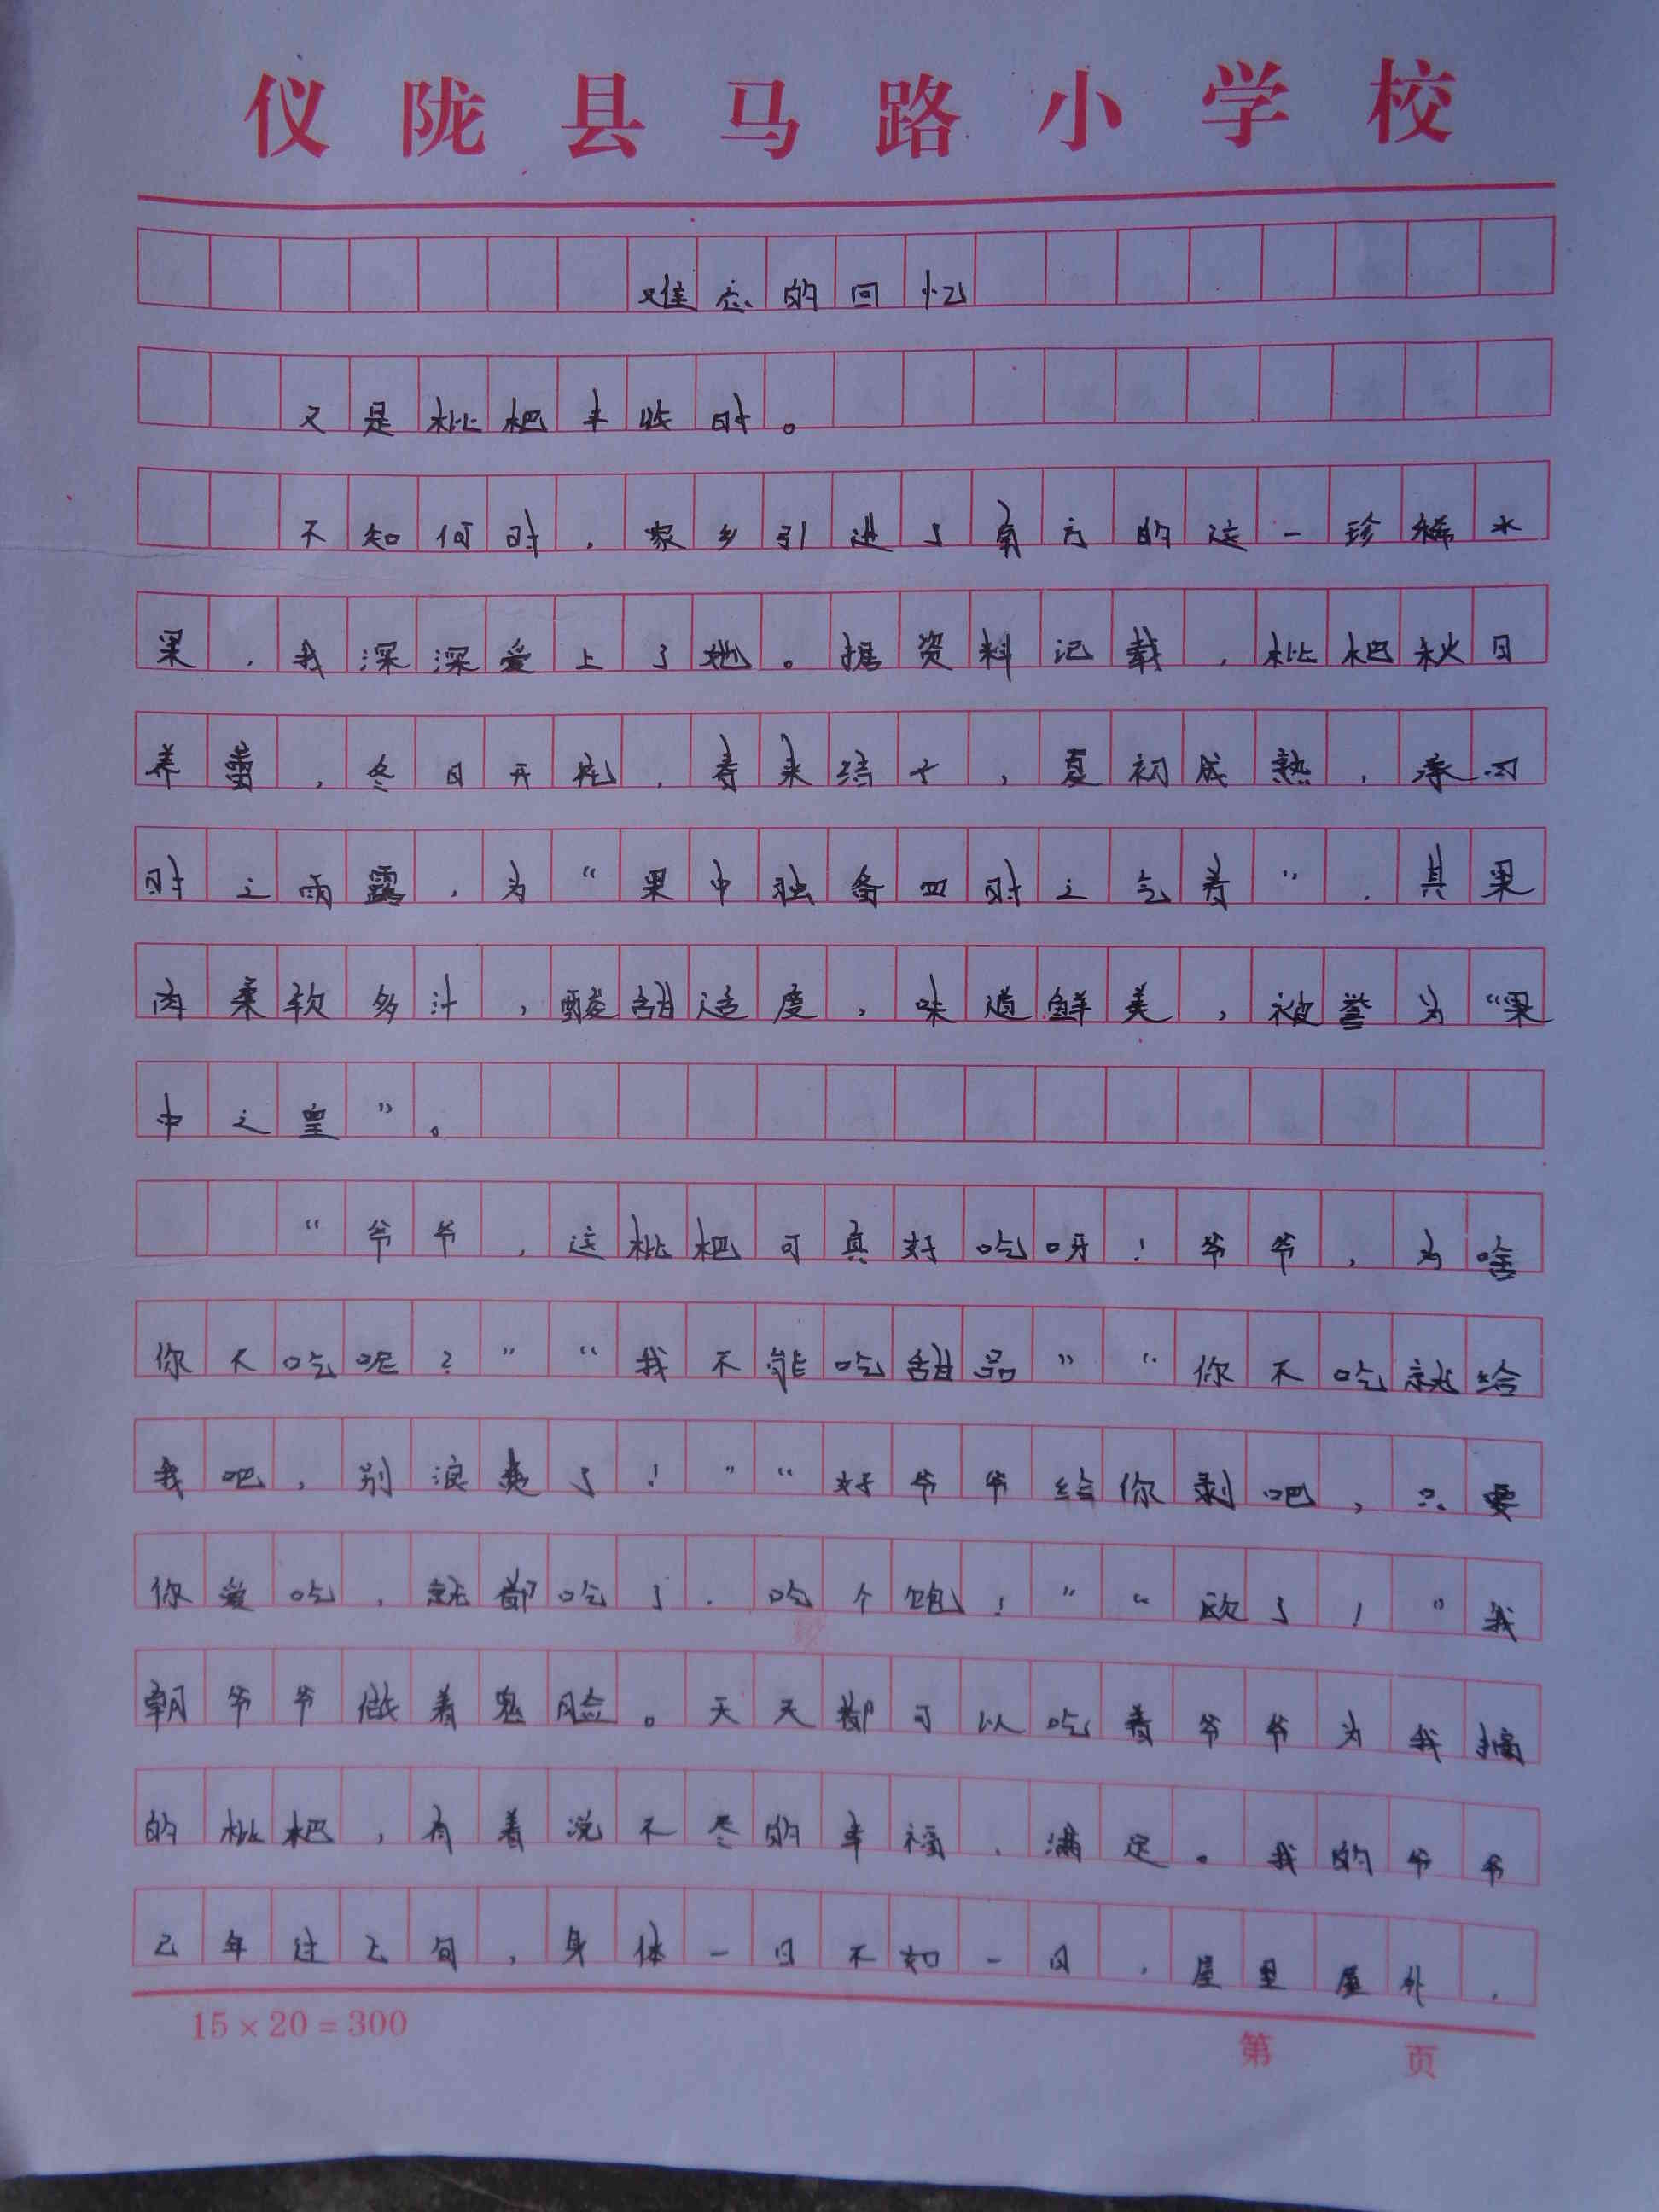 仪陇县马路小学校
难忘的回忆
又是枇杷丰收时。
不知何时,家乡引进了南方的这一珍稀水
果,我深深爱上了她。据资料记载,枇杷秋日
养蕾,冬日开花,春来结子,夏初成熟,承四
时之雨露,为“果中独备四时之气者”,其果
肉柔软多汁,酸甜适度,味道鲜美,被誉为“果
中之皇”。
“爷爷,这枇杷可真好吃呀!爷爷,为啥
你不吃呢?”“我不能吃甜品”“你不吃就给
我吧,别浪费了!”“好爷爷给你剥吧,只要
你爱吃,就都吃了,吃个饱!”“欧了!”我
朝爷爷做着鬼脸。天天都可以吃着爷爷为我摘
的枇杷,有着说不尽的幸福、满足。我的爷爷
已年过七旬,身体一日不如一日,屋里屋外,
15×20=300
第 页